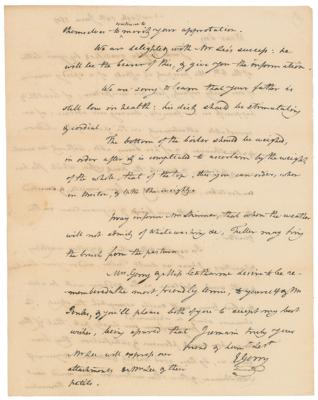 themselves to merit your approbation.
We are delighted with Mr Lee's success: he
will be the bearer of this, & give you the information
We are sorry to learn that your father is
still low in health: his diet should be stimulating
& cordial.
The bottom of the boiler should be weighed,
in order after it is compleated to ascertain by the weight
of the whole, that of the top. this you can order, when
in Boston, & take the weight.
may inform Mr Skinner, that when the weather
will not admit of white washing &c, Fuller may bring
the brush from the pasture.
Mrs Gerry & Miss Catharine desire to be re-
membered in the most friendly terms, to yourself & Mr
& you'll please both of you to accept my best
wishes, being assured that I remain truly your
friend & humb Servt
E Gerry
Mr Lee will express our
attachments to Mrs Lee & their
petits.